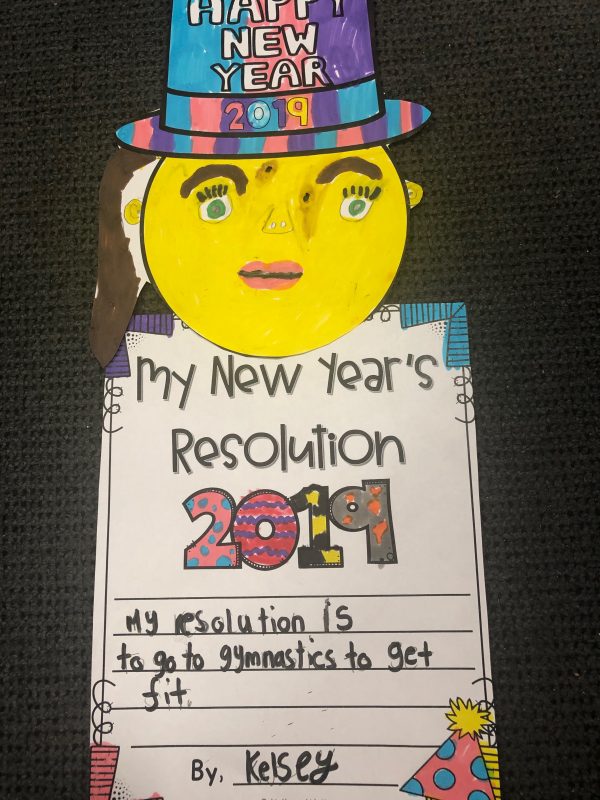 HAPPY
NEW
YEAR
2019
My New Year's
Resolution
2019
My resolution is
to go to gymnastics to get
fit.
By, Kelsey